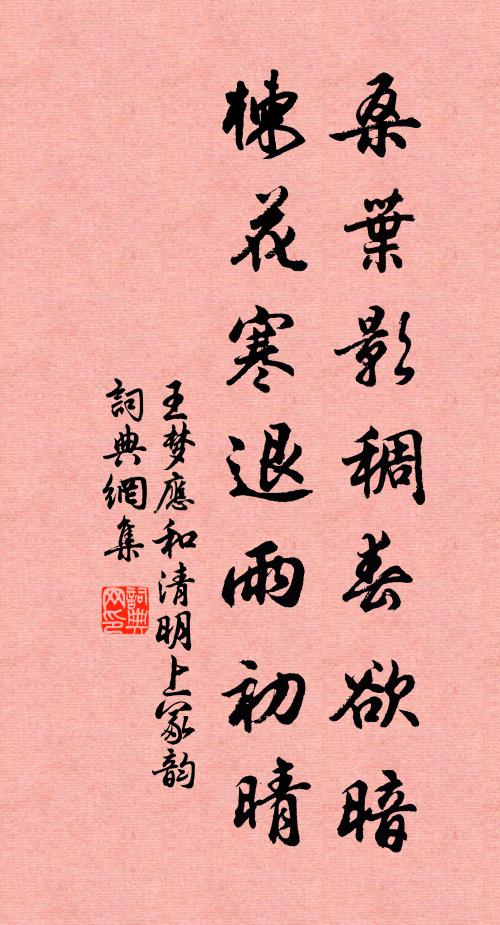 桑葉影稠春欲暗
楝花寒退雨初晴
王梦應和清明上冢韵
詞典網集
詞典网印